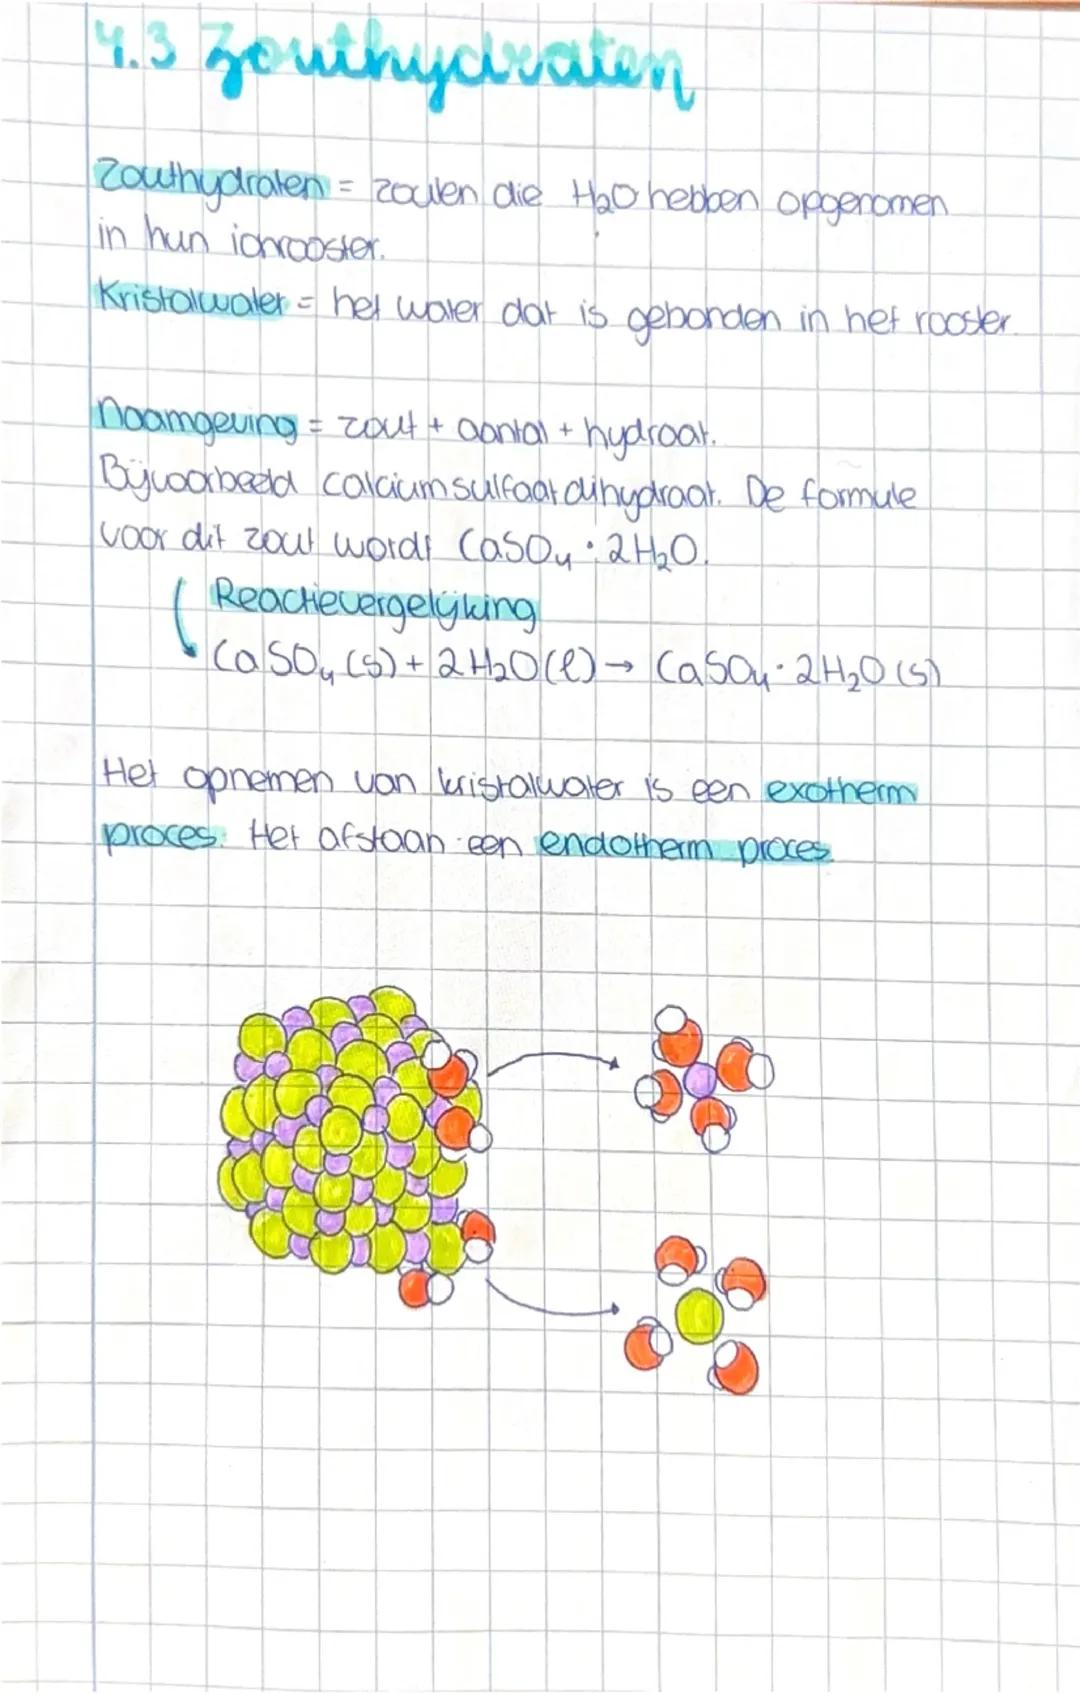 4.3 Zouthydraten
Zouthydraten = zouten die H₂O hebben opgenomen
in hun ionrooster.
Kristalwater = het water dat is gebonden in het rooster.
Naamgeving = zout + aantal + hydraat.
Bijvoorbeeld calciumsulfaatdihydraat. De formule
voor dit zout wordt CaSO₄ · 2H₂O.
Reactievergelijking
CaSO₄ (s) + 2H₂O(l) → CaSO₄ · 2H₂O (s)
Het opnemen van kristalwater is een exotherm
proces. Het afstaan een endotherm proces